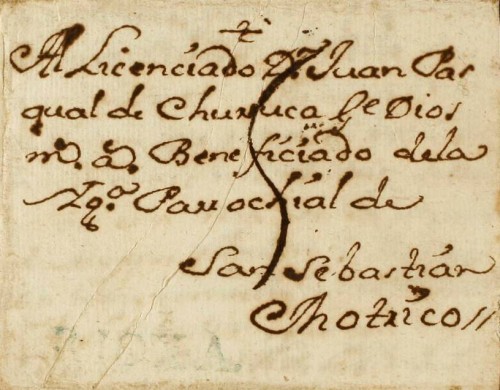 Al Licenciado Dn. Juan Pas
qual de Churruca Ge. Dios
ms. as. Beneficiado dela
Ygª. Parrochial de
San Sebastián
Motrico